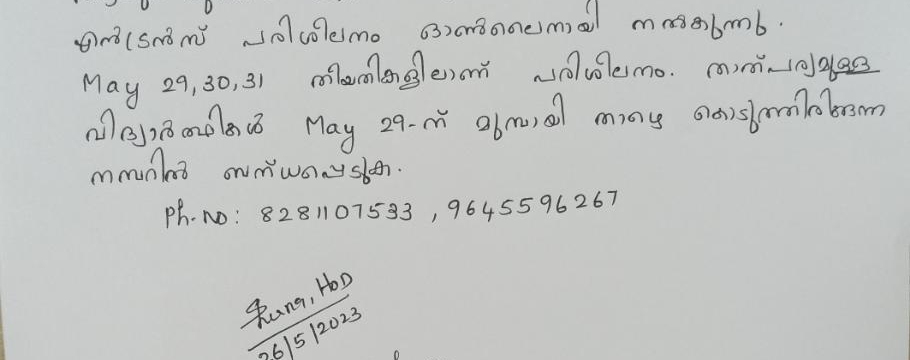 എൻട്രൻസ് പരിശീലനം ഓൺലൈനായി നൽകുന്നു.
May 29,30,31 തീയതികളിലാണ് പരിശീലനം. താത്പര്യമുള്ള
വിദ്യാർത്ഥികൾ May 29-ന് മുമ്പായി താഴെ കൊടുത്തിരിക്കുന്ന
നമ്പറിൽ ബന്ധപ്പെടുക.
Ph.No: 8281107533 , 9645596267
HOD
26/5/2023